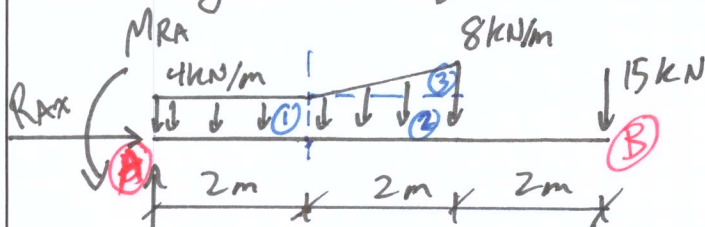 MRA
8kN/m
4kN/m
15kN
RAx
①
②
③
A
B
2m
2m
2m